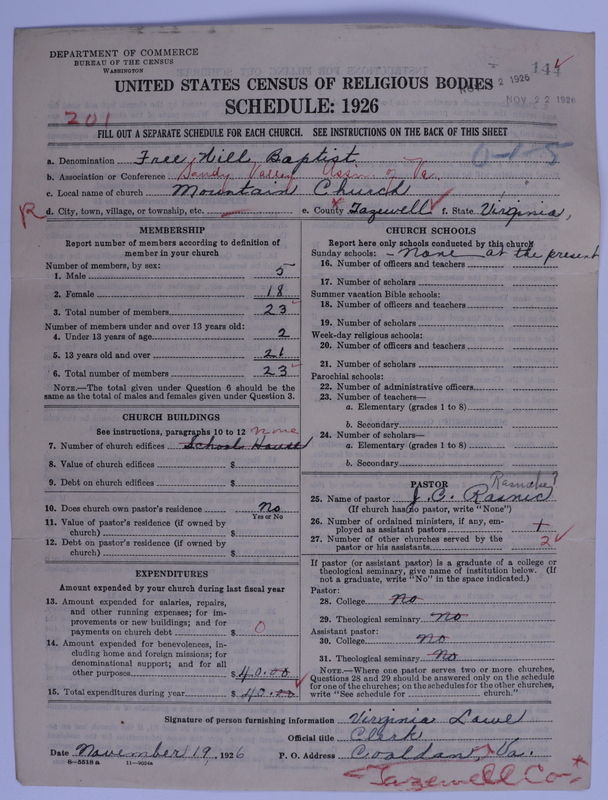 DEPARTMENT OF COMMERCE
BUREAU OF THE CENSUS
WASHINGTON
144
UNITED STATES CENSUS OF RELIGIOUS BODIES
NOV 22 1926
SCHEDULE: 1926
201
FILL OUT A SEPARATE SCHEDULE FOR EACH CHURCH. SEE INSTRUCTIONS ON THE BACK OF THIS SHEET
a. Denomination Free Will Baptist 0-1-5
b. Association or Conference Sandy Valley Assn. of Va.
c. Local name of church Mountain Church
R d. City, town, village, or township, etc. — e. County Tazewell f. State Virginia,
MEMBERSHIP
Report number of members according to definition of
member in your church
Number of members, by sex:
1. Male 5
2. Female 18
3. Total number of members 23
Number of members under and over 13 years old:
4. Under 13 years of age 2
5. 13 years old and over 21
6. Total number of members 23
NOTE.—The total given under Question 6 should be the
same as the total of males and females given under Question 3.
CHURCH BUILDINGS
See instructions, paragraphs 10 to 12 none
7. Number of church edifices School House
8. Value of church edifices $
9. Debt on church edifices $
10. Does church own pastor's residence? No
Yes or No
11. Value of pastor's residence (if owned by
church) $
12. Debt on pastor's residence (if owned by
church) $
EXPENDITURES
Amount expended by your church during last fiscal year
13. Amount expended for salaries, repairs,
and other running expenses; for im-
provements or new buildings; and for
payments on church debt $ 0
14. Amount expended for benevolences, in-
cluding home and foreign missions; for
denominational support; and for all
other purposes $ 40.00
15. Total expenditures during year $ 40.00
CHURCH SCHOOLS
Report here only schools conducted by this church
Sunday schools: - None at the present
16. Number of officers and teachers
17. Number of scholars
Summer vacation Bible schools:
18. Number of officers and teachers
19. Number of scholars
Week-day religious schools:
20. Number of officers and teachers
21. Number of scholars
Parochial schools:
22. Number of administrative officers
23. Number of teachers—
a. Elementary (grades 1 to 8)
b. Secondary
24. Number of scholars—
a. Elementary (grades 1 to 8)
b. Secondary
PASTOR
25. Name of pastor J. C. Rasnic
(If church has no pastor, write "None")
26. Number of ordained ministers, if any, em-
ployed as assistant pastors
27. Number of other churches served by the
pastor or his assistants 2
If pastor (or assistant pastor) is a graduate of a college or
theological seminary, give name of institution below. (If
not a graduate, write "No" in the space indicated.)
Pastor:
28. College No
29. Theological seminary No
Assistant pastor:
30. College No
31. Theological seminary No
NOTE.—Where one pastor serves two or more churches,
Questions 28 and 29 should be answered only on the schedule
for one of the churches; on the schedules for the other churches,
write "See schedule for church."
Signature of person furnishing information Virginia Lowe
Official title Clerk
Date November 19, 1926 P. O. Address Coaldan, Va.
8—5518 a
Tazewell Co.